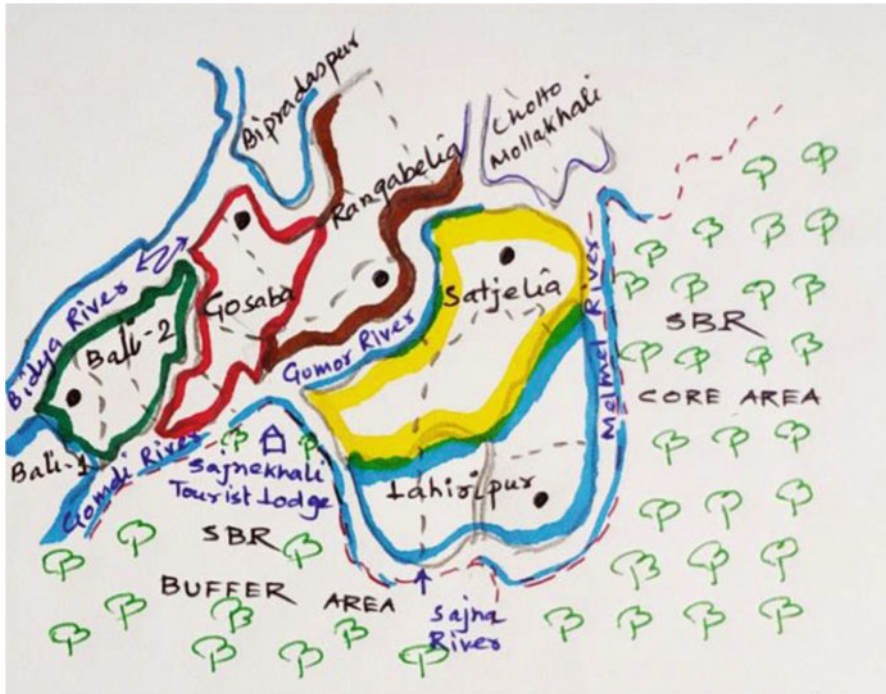 Bipradaspur
Chotto
Mollakhali
Rangabelia
Bidya River
Gosaba
Satjelia
Bali-2
Gomor River
Melmel River
SBR
CORE AREA
Bali-1
Gomdi River
Sajnekhali
Tourist Lodge
Lahiripur
SBR
BUFFER AREA
Sajna
River